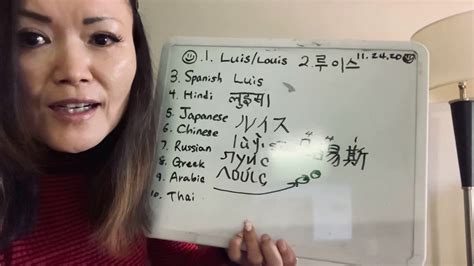 1. Luis/Louis 2 루이스 11.24.20
3. Spanish Luis
4. Hindi लुइस।
5 Japanese ルイス
6 Chinese 易斯
7. Russian
8 Greek Λουις
9. Arabic
10. Thai